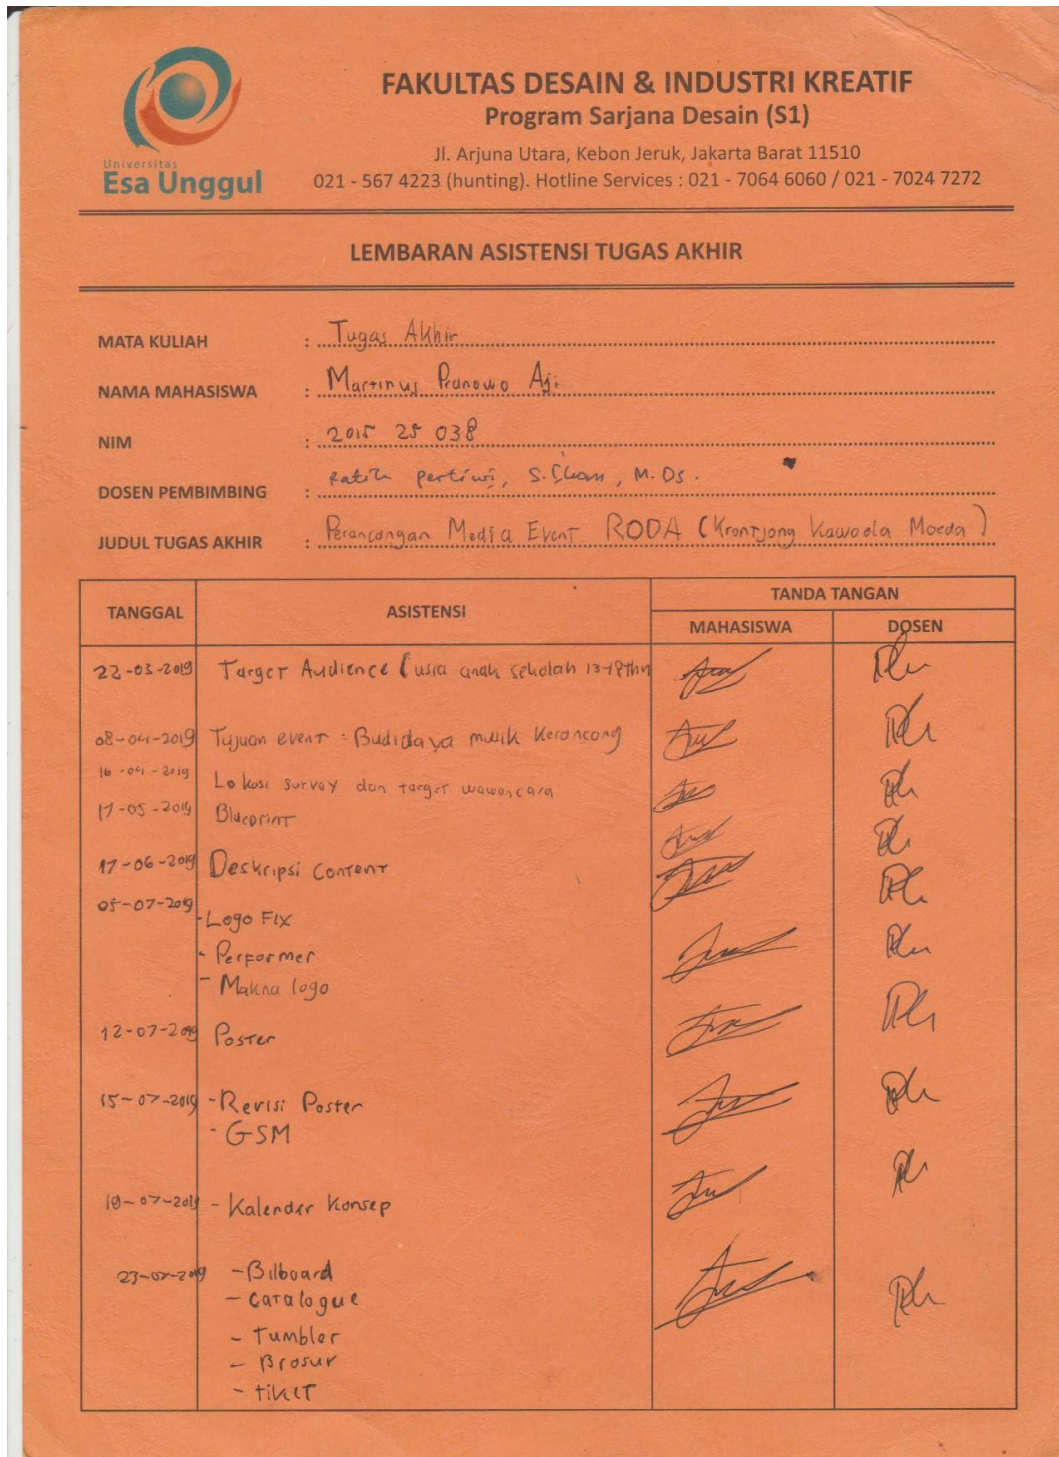 Universitas
Esa Unggul
FAKULTAS DESAIN & INDUSTRI KREATIF
Program Sarjana Desain (S1)
Jl. Arjuna Utara, Kebon Jeruk, Jakarta Barat 11510
021 - 567 4223 (hunting). Hotline Services : 021 - 7064 6060 / 021 - 7024 7272
LEMBARAN ASISTENSI TUGAS AKHIR
MATA KULIAH : Tugas Akhir
NAMA MAHASISWA : Martinus Pranowo Aji
NIM : 2015 25 038
DOSEN PEMBIMBING : Ratih Pertiwi, M.Ds.
JUDUL TUGAS AKHIR : Perancangan Media Event RODA (Krontjong Kawoela Moeda)
TANGGAL ASISTENSI TANDA TANGAN
MAHASISWA DOSEN
22-03-2019 Target Audience (usia anak sekolah 13-18thn
08-04-2019 Tujuan event : Budidaya musik Keroncong
16-04-2019 Lokasi survey dan target wawancara
17-05-2019 Blueprint
17-06-2019 Deskripsi Content
05-07-2019
- Logo Fix
- Performer
- Makna logo
12-07-2019 Poster
15-07-2019 - Revisi Poster
- GSM
19-07-2019 - Kalender Konsep
23-07-2019 - Bilboard
- Catalogue
- Tumbler
- Brosur
- tiket